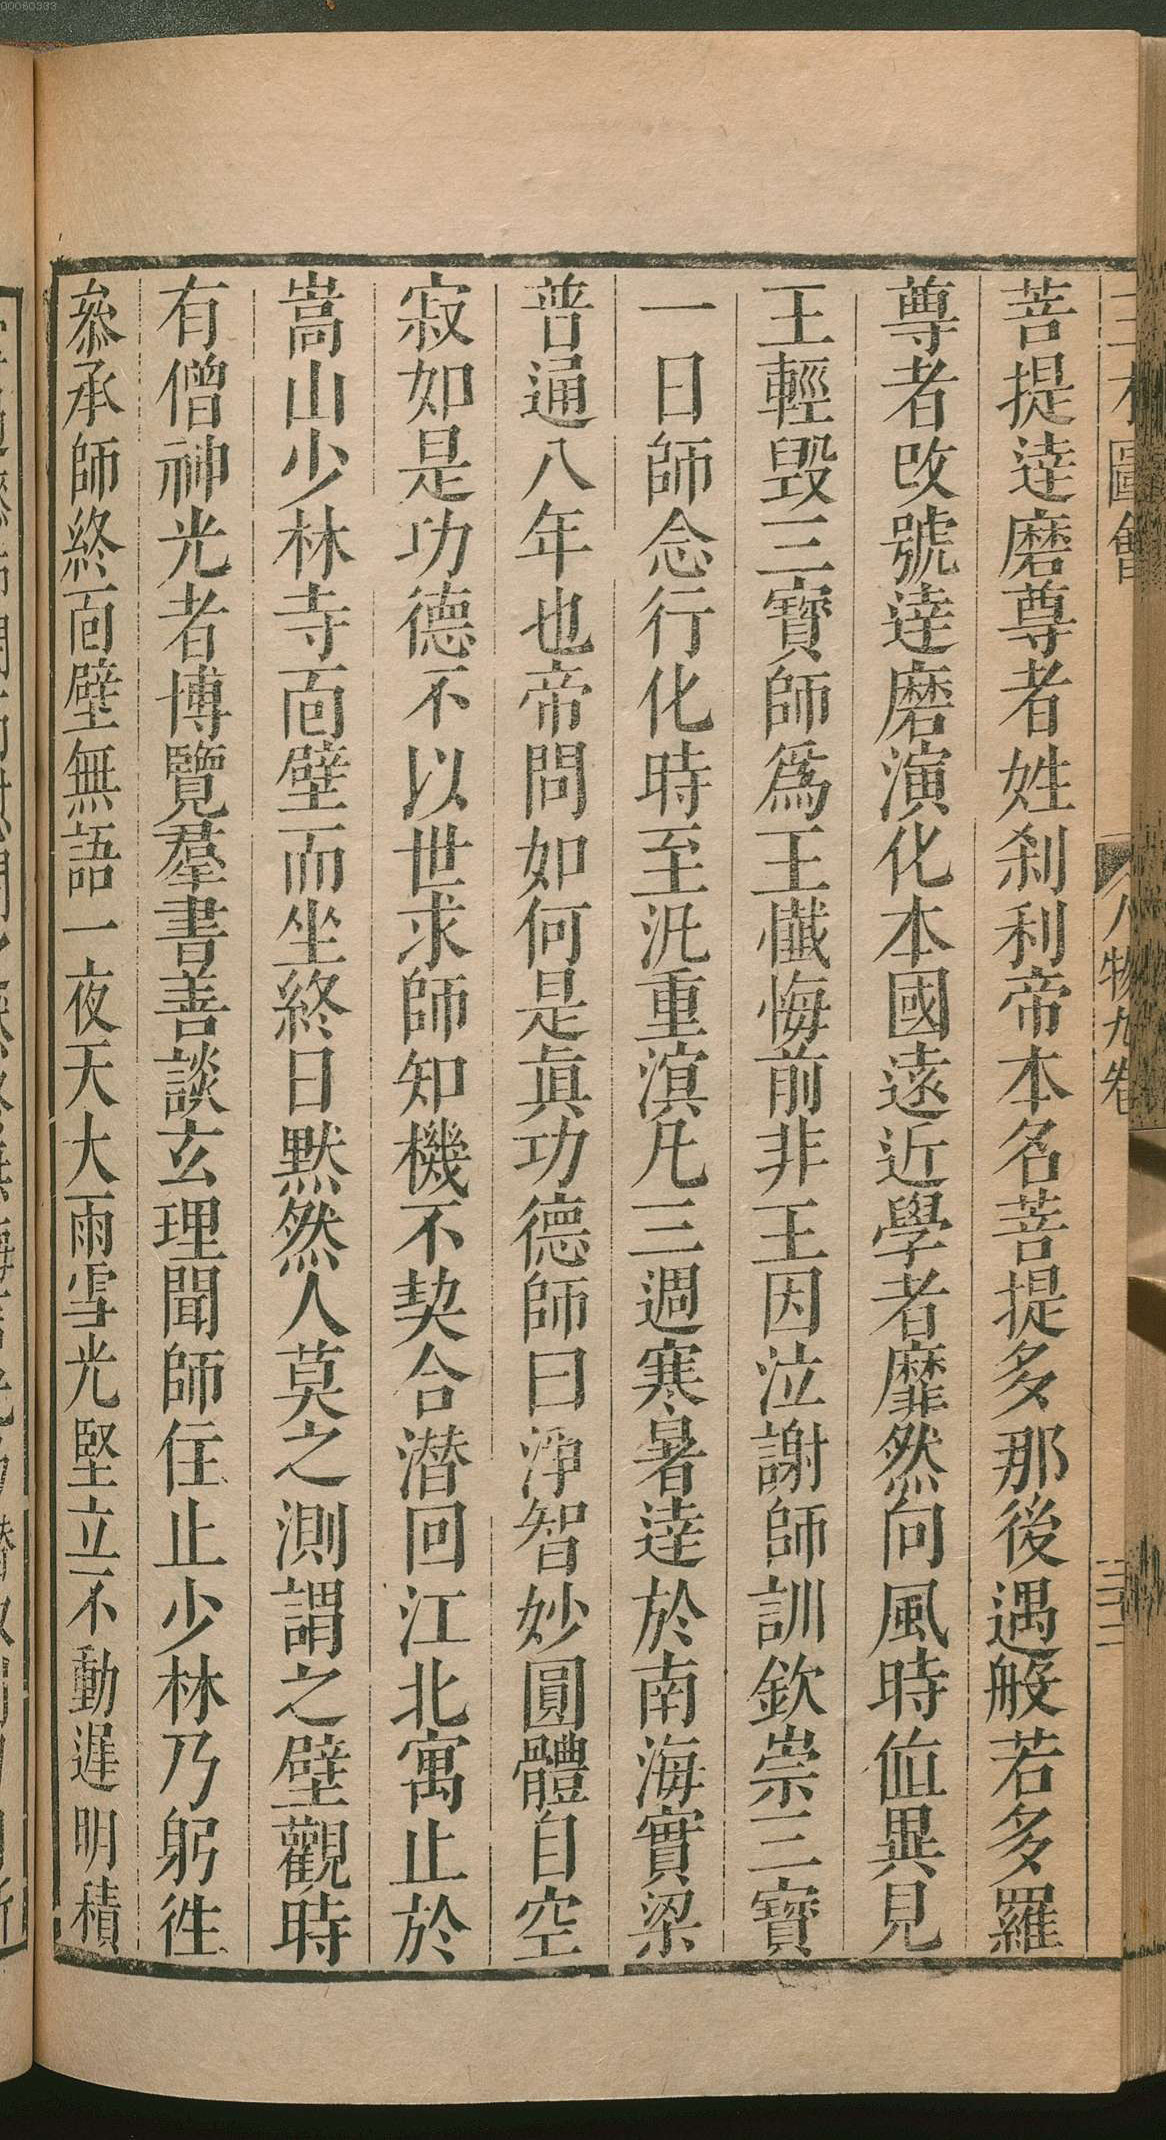 00060333
三才圖會
人物九卷
三十二
菩提達磨尊者姓刹利帝本名菩提多那後遇般若多羅
尊者改號達磨演化本國遠近學者靡然向風時値異見
王輕毀三寶師爲王懺悔前非王因泣謝師訓欽崇三寶
一日師念行化時至汎重溟凡三週寒暑達於南海實梁
普通八年也帝問如何是眞功德師曰淨智妙圓體自空
寂如是功德不以世求師知機不契合潜回江北寓止於
嵩山少林寺面壁而坐終日默然人莫之測謂之壁觀時
有僧神光者博覽羣書善談玄理聞師住止少林乃躬徃
叅承師終面壁無語一夜天大雨雪光堅立不動遲明積